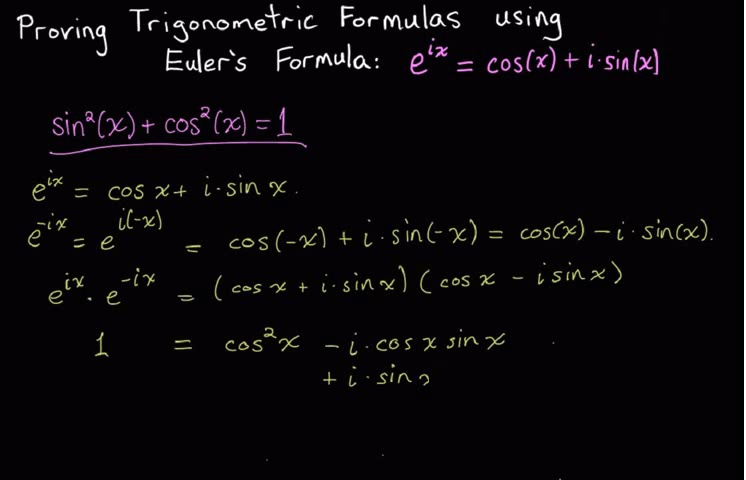 Proving Trigonometric Formulas using
Euler's Formula: e^{ix} = cos(x) + i·sin(x)
sin²(x) + cos²(x) = 1
e^{ix} = cos x + i·sin x.
e^{-ix} = e^{i(-x)} = cos(-x) + i·sin(-x) = cos(x) - i·sin(x).
e^{ix} · e^{-ix} = (cos x + i·sin x)(cos x - i sin x)
1 = cos²x - i·cos x sin x
+ i·sin